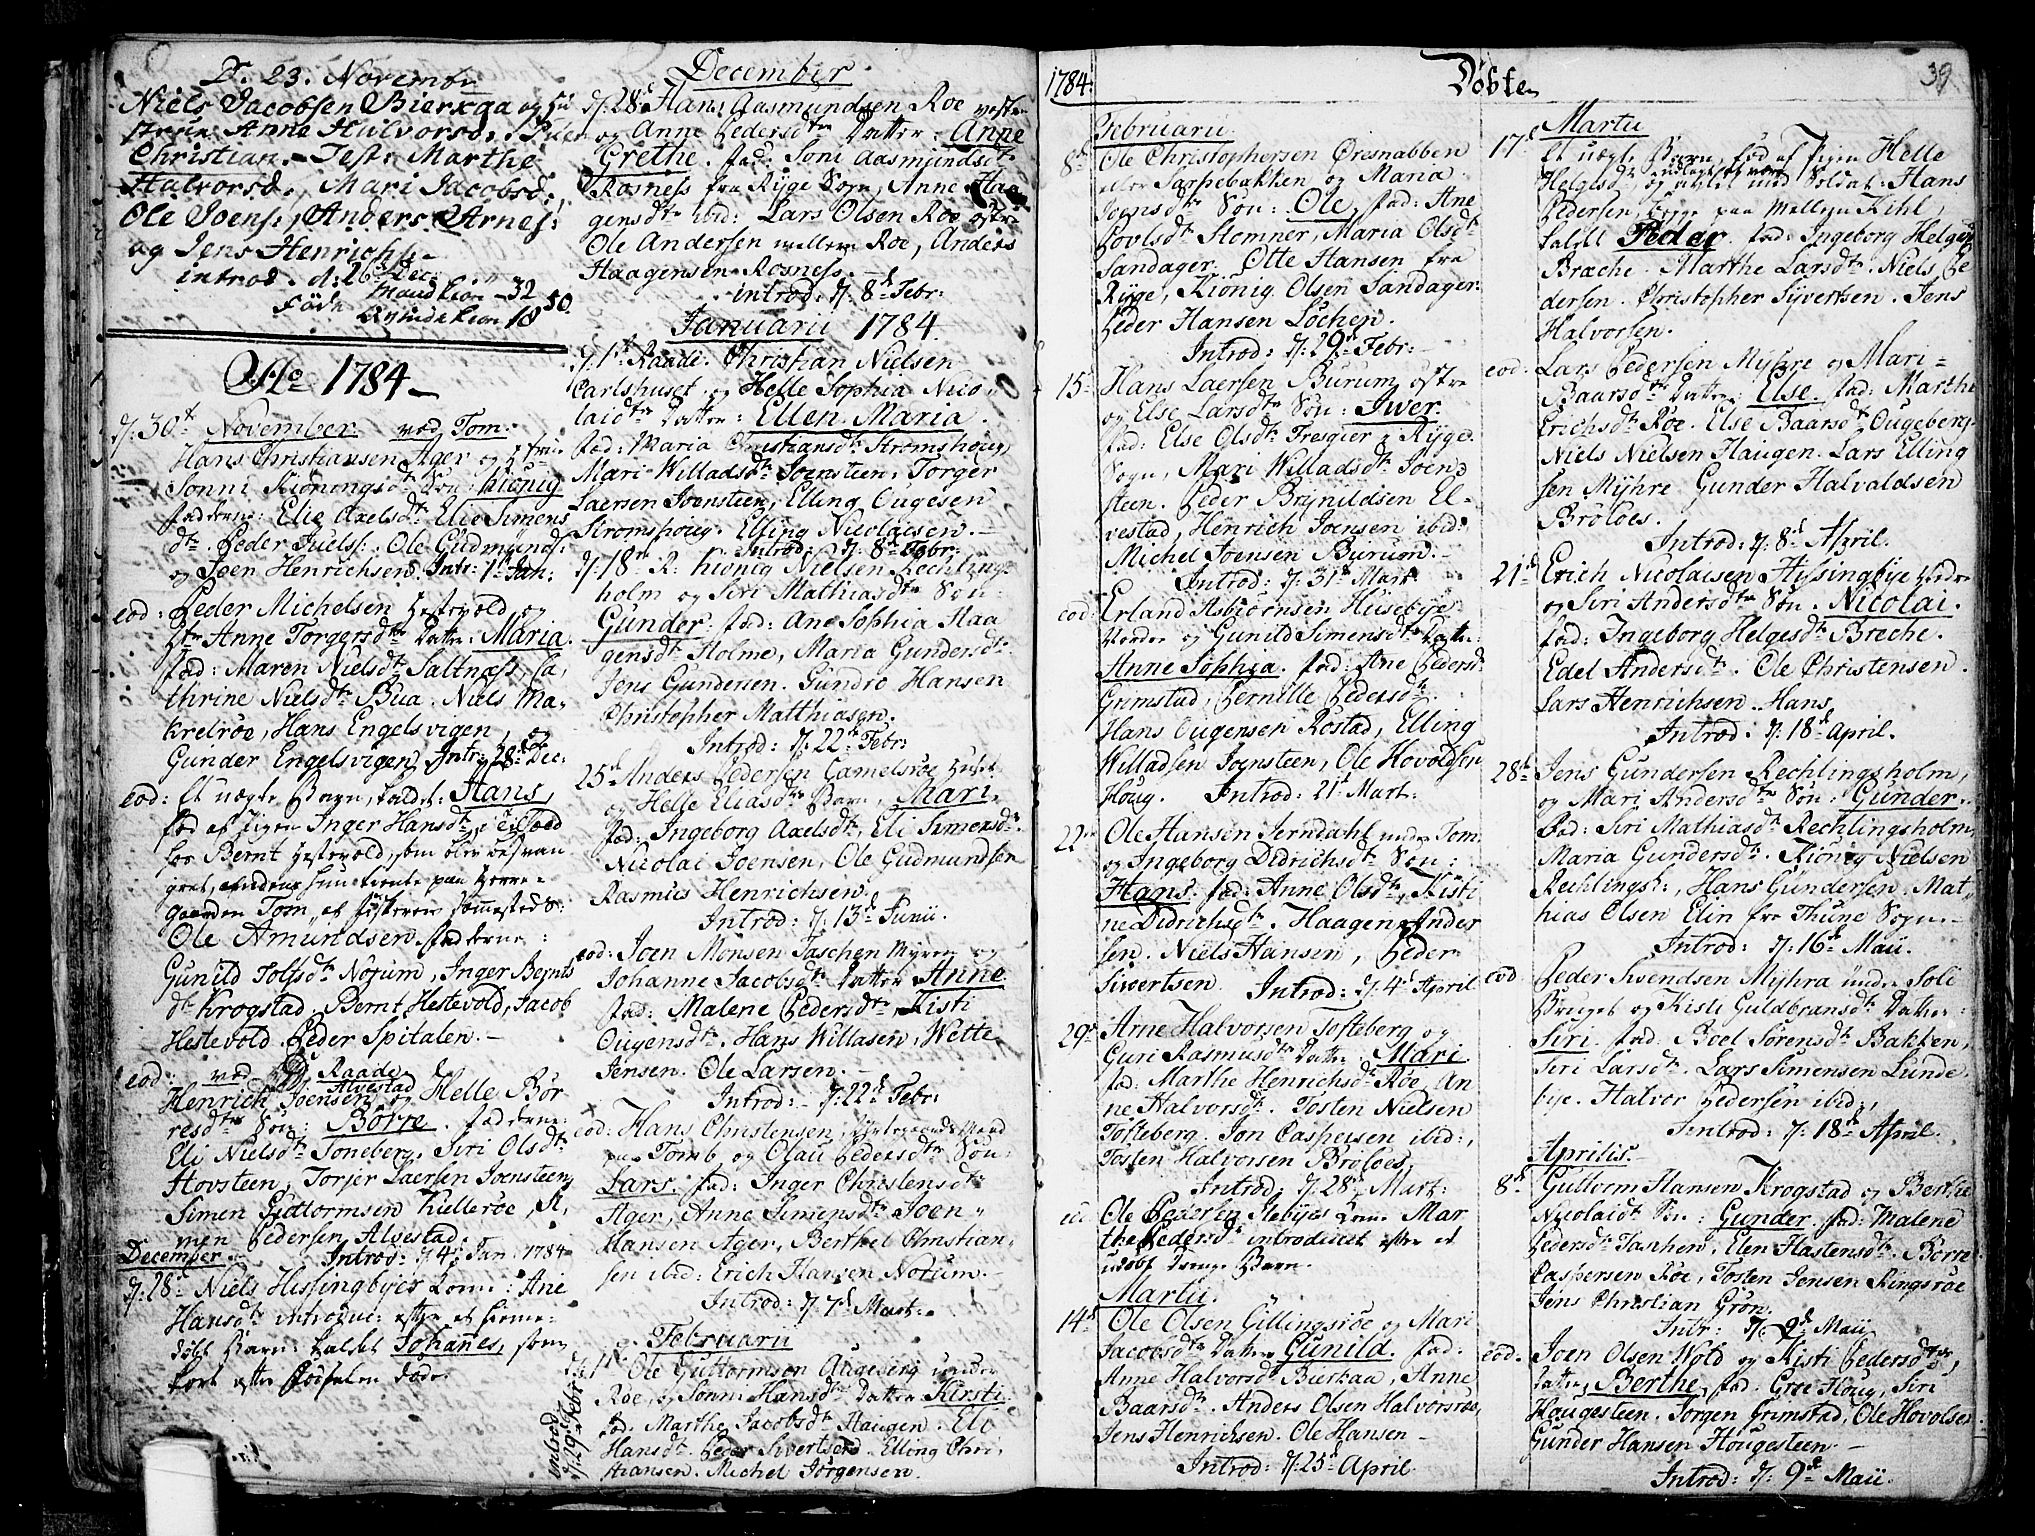 D. 23. Novembr
Niels Jacobsen Bierkga og Hu
strue Anne Halvorsd:
Christian. Test: Marthe
Halvorsd. Mari Jacobsd.,
Ole Joens: Anders Arnes:
og Jens Henrichs:
introd. d: 26 Dec:
Mandkion 32
Føde 50
Qvindekion 18
Ao 1784
d: 30t November ved Tom.
Hans Christiansen Ager og Hstru
Sønni Kioningsdt Søn: Kionig
fadderne: Elie Axelsdt Elie Simens
dt. Peder Juels: Ole Gudmunds:
og Joen Henrichsen. Intr: 1t Jan:
eod: Peder Michelsen Hestevold og
Hstr Anne Torgersdtr Datter: Maria.
fad: Maren Nielsdt Saltnæss, Ca-
thrine Nielsdt Bua. Niels Ma-
krelröe, Hans Engelsvigen, og
Gunder Engelsvigen Intr: 28 Dec:
eod: Et uægte Barn, kaldet: Hans,
fød af Pigen Inger Hansdt,
hos Bernt Hestevold, som blev besvan
gret, endens hun tiente paa Herre-
gaarden Tom, af
Ole Amundsen. fadderne:
Gunild Tolfsdt Norum, Inger Bernts
dt Krogstad, Bernt Hestevold, Jacob
Hestevold. Peder Spitalen.
eod: ved Raade
Henrich Joensen Alvestad og Helle Bör
resdtr Søn: Börre. fadderne:
Eli Nielsdt Toneberg, Siri Olsdt
Hovsteen, Torjer Laersen Joensteen,
Simen Guttormsen Kulleröe, A-
men Pedersen Alvestad.
December Introd: d: 4t Jan: 1784
d: 28 Niels Hissingbyes Kone: Ane
Hansdt introduc: efter et hiemme-
døbt Barn kaldet Johanes, som
kort efter Födselen døde.
December
d: 28 Hans Aasmundsen Roe vestre
og Anne Pedersdtr Datter: Anne
Grethe. fad: Soni Aasmundsdt
Rosness fra Ryge Sogn, Anne Haa
gensdtr ibid: Lars Olsen Roe østre
Ole Andersen mellem Roe, Anders
Haagensen Rosness.
introd: d: 8d Febr:
Januarii 1784.
d: 1t Raade. Christian Nielsen
Carlshuset og Helle Sophia Nico-
laidtr Datter: Ellen Maria.
fad: Maria Christiansdt Strømshoug
Mari Willadsdt Joensteen, Torger
Laersen Joensteen, Elling Ougesen
Stromshoug. Elling Nicolaisen.
Introd: d: 8t Febr:
d: 18 R: Kionig Nielsen Rechlings-
holm og Siri Mathiasdtr Søn:
Gunder. fad: Ane Sophia Haa
gensdt Holme, Maria Gundersdt
Jens Gundersen. Gundro Hansen
Christopher Matthiasen.
Introd: d: 22 Febr:
25d Anders Pedersen Gamelsröe
og Helle Eliasdtr Barn, Mari,
fad: Ingeborg Axelsdt, Eli Simensdt,
Nicolai Joensen, Ole Gudmundsen
Rasmus Henrichsen.
Introd: d: 13d Junii.
eod: Joen Monsen Taschen Myren og
Johanne Jacobsdtr Datter Anne
fad: Malene Pedersdtr, Kisti
Ougensdt. Hans Willasen, Wette
Jensen. Ole Larsen.
Introd: d: 22d Febr:
eod: Hans Christensen,
paa Tomb og Olau Pedersdtr Søn:
Lars. fad: Inger Christensdt
Ager, Anne Simensdt Joen
Hansen Ager, Berthel Christian-
sen ibid: Erich Hansen Norum.
Introd: d: 7d Mart:
Februarii
d: 1t Ole Guttormsen Augeberg under
Roe, og Sönni Hansdtr Datter Kirsti.
fad. Marthe Jacobsdtr Haugen. Eli
Hansdt. Peder Sivertsen. Elling Chri-
stiansen. Michel Jörgensen.
introd: d: 29 Febr:
1784. Döbte 39
Februarii
8d Ole Christophersen Øresnabben
eller Sarpebakken og Maria
Joensdtr Søn: Ole. fad: Ane
Povlsdt Stomner, Maria Olsdt
Sandager. Otte Hansen fra
Ryge, Kionig Olsen Sandager.
Peder Hansen Löchen.
Introd: d: 29d Febr:
15 Hans Laersen Burum østre
og Else Larsdtr Søn: Iwer.
fad: Else Olsdtr Fresgier i Ryge
Sogn, Mari Willadsdt Joen-
steen. Peder Brynildsen El-
vestad, Henrich Joensen ibid:
Michel Joensen Burum.
Introd: d: 31t Mart:
eod: Erland Asbiörnsen Husebye
Nordre og Gunild Simensdtr Datter
Anne Sophia. fad: Ane Pedersd:
Grimstad, Pernille Pedersdt.
Hans Ougensen Rostad, Elling
Willadsen Joensteen, Ole Hovoldsen
Houg. Introd: 21t Mart:
22 Ole Hansen Jerndahl under Tom
og Ingeborg Didrichsdt Søn:
Hans. fad: Anne Olsdtr, Kisti-
ne Didrichsdt. Haagen Ander
sen. Niels Hansen, Peder
Sivertsen. Introd: d: 4d April
29 Arne Halvorsen Tofteberg og
Guri Rasmusdtr Datter Mari
fad: Marthe Henrichsdt Röe, An
ne Halvorsdt. Tosten Nielsen
Tofteberg. Jon Caspersen ibid:,
Tosten Halvorsen Bröloes.
Introd: d: 28 Mart:
eod Ole Pedersen Slebyes Kone Mar
the Pedersdt introduceret efter et
udøbt Drenge Barn.
Martii.
14d Ole Olsen Gillingsröe og Mari
Jacobsdtr Datter Gunild. fad:
Anne Halvorsdt Bierkaa, Anne
Baarsdt. Anders Olsen Halvorsröe,
Jens Henrichsen. Ole Hansen
Introd: d: 25d April.
Martii
17d Et uægte Barn, fød af Pigen Helle
Helgesdtr og avlet med Soldat: Hans
Pedersen, begge paa Mellem Kihl,
kaldt Peder. fad: Ingeborg Helgesdt
Bræche. Marthe Larsdtr. Niels Pe
dersen. Christopher Syvertsen. Jens
Halvorsen.
eod. Lars Pedersen Myhre og Mari
Baarsdtr Datter: Else. fad: Marthe
Erichsdt Röe. Else Baarsdt Ougeberg,
Niels Nielsen Haugen. Lars Elling
sen Myhre Gunder Halvaldsen
Bröloes.
Introd: d: 8d April.
21t Erich Nicolaisen Hissingbye Nordre
og Siri Andersdtr Søn. Nicolai.
fad: Ingeborg Helgesdt Breche.
Edel Andersdt. Ole Christensen.
Lars Henrichsen. Hans
Introd: d: 18d April.
28t Jens Gundersen Rechlingsholm,
og Mari Andersdtr Søn: Gunder.
fad: Siri Mathiasdt Rechlingsholm,
Maria Gundersdtr. Kionig Nielsen
Rechlingsh:, Hans Gundersen. Mat-
hias Olsen Elin fra Thune Sogn.
Introd: d: 16d Maii.
eod. Peder Svendsen Myhra under Soli
Bruget og Kisti Guldbransdt Datter:
Siri. fad: Boel Sörensdt Bakken,
Siri Larsdt. Lars Simensen Lunde
bye. Halvor Pedersen ibid:,
Introd: d: 18d April.
Aprilis.
8d Guttorm Hansen Krogstad og Berthe
Nicolaidt Søn: Gunder. fad: Malene
Pedersdt Taschen, Elen Hastensdt. Börre
Caspersen Röe, Tosten Jensen Ringsröe
Jens Christian Grön.
Intr: d: 2d Maii
eod. Joen Olsen Wold og Kisti Pedersdtr,
Datter, Berthe, fad. Groe Houg, Siri
Hougesteen. Jorgen Grimstad, Ole Hovolsen
Gunder Hansen Hougesteen.
Introd: d: 9d Maii.